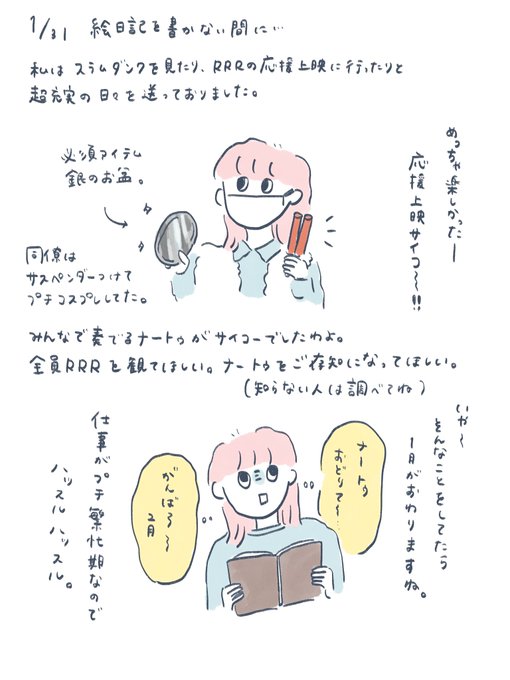 1/31 絵日記を書かない間に…
私は スラムダンクを見たり、RRRの応援上映に行ったりと
超充実の日々を送っておりました。
めっちゃ楽しかったー
応援上映サイコ〜!!
必須アイテム
銀のお盆。
同僚は
サスペンダーつけて
プチコスプレしてた。
みんなで奏でるナートゥがサイコーでしたわよ。
全員RRRを観てほしい。ナートゥをご存知になってほしい。
(知らない人は調べてね)
いや〜
そんなことをしてたら
1月がおわりますね。
ナートゥ
おどりて〜…
がんばろ〜
2月
仕事がプチ繁忙期なので
ハッスルハッスル。